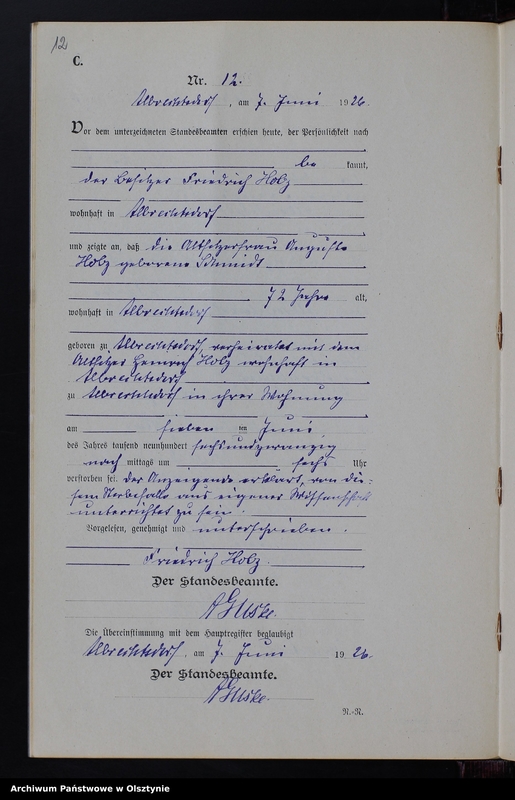 12
C.
Nr. 12.
Albrechtsdorf, am 7. Juni 1926.
Vor dem unterzeichneten Standesbeamten erschien heute, der Persönlichkeit nach
be kannt,
der Besitzer Friedrich Holz
wohnhaft in Albrechtsdorf
und zeigte an, daß die Altsitzerfrau Auguste
Holz geborene Schmidt
72 Jahre alt,
wohnhaft in Albrechtsdorf
geboren zu Albrechtsdorf, verheiratet mit dem
Altsitzer Heinrich Holz wohnhaft in
Albrechtsdorf
zu Albrechtsdorf in ihrer Wohnung
am sieben ten Juni
des Jahres tausend neunhundert sechsundzwanzig
nach mittags um sechs Uhr
verstorben sei. Der Anzeigende erklärt, von die-
sem Sterbefalle aus eigener Wissenschaft
unterrichtet zu sein.
Vorgelesen, genehmigt und unterschrieben.
Friedrich Holz.
Der Standesbeamte.
Die Übereinstimmung mit dem Hauptregister beglaubigt
Albrechtsdorf, am 7. Juni 1926.
Der Standesbeamte.
R.-R.
Archiwum Państwowe w Olsztynie